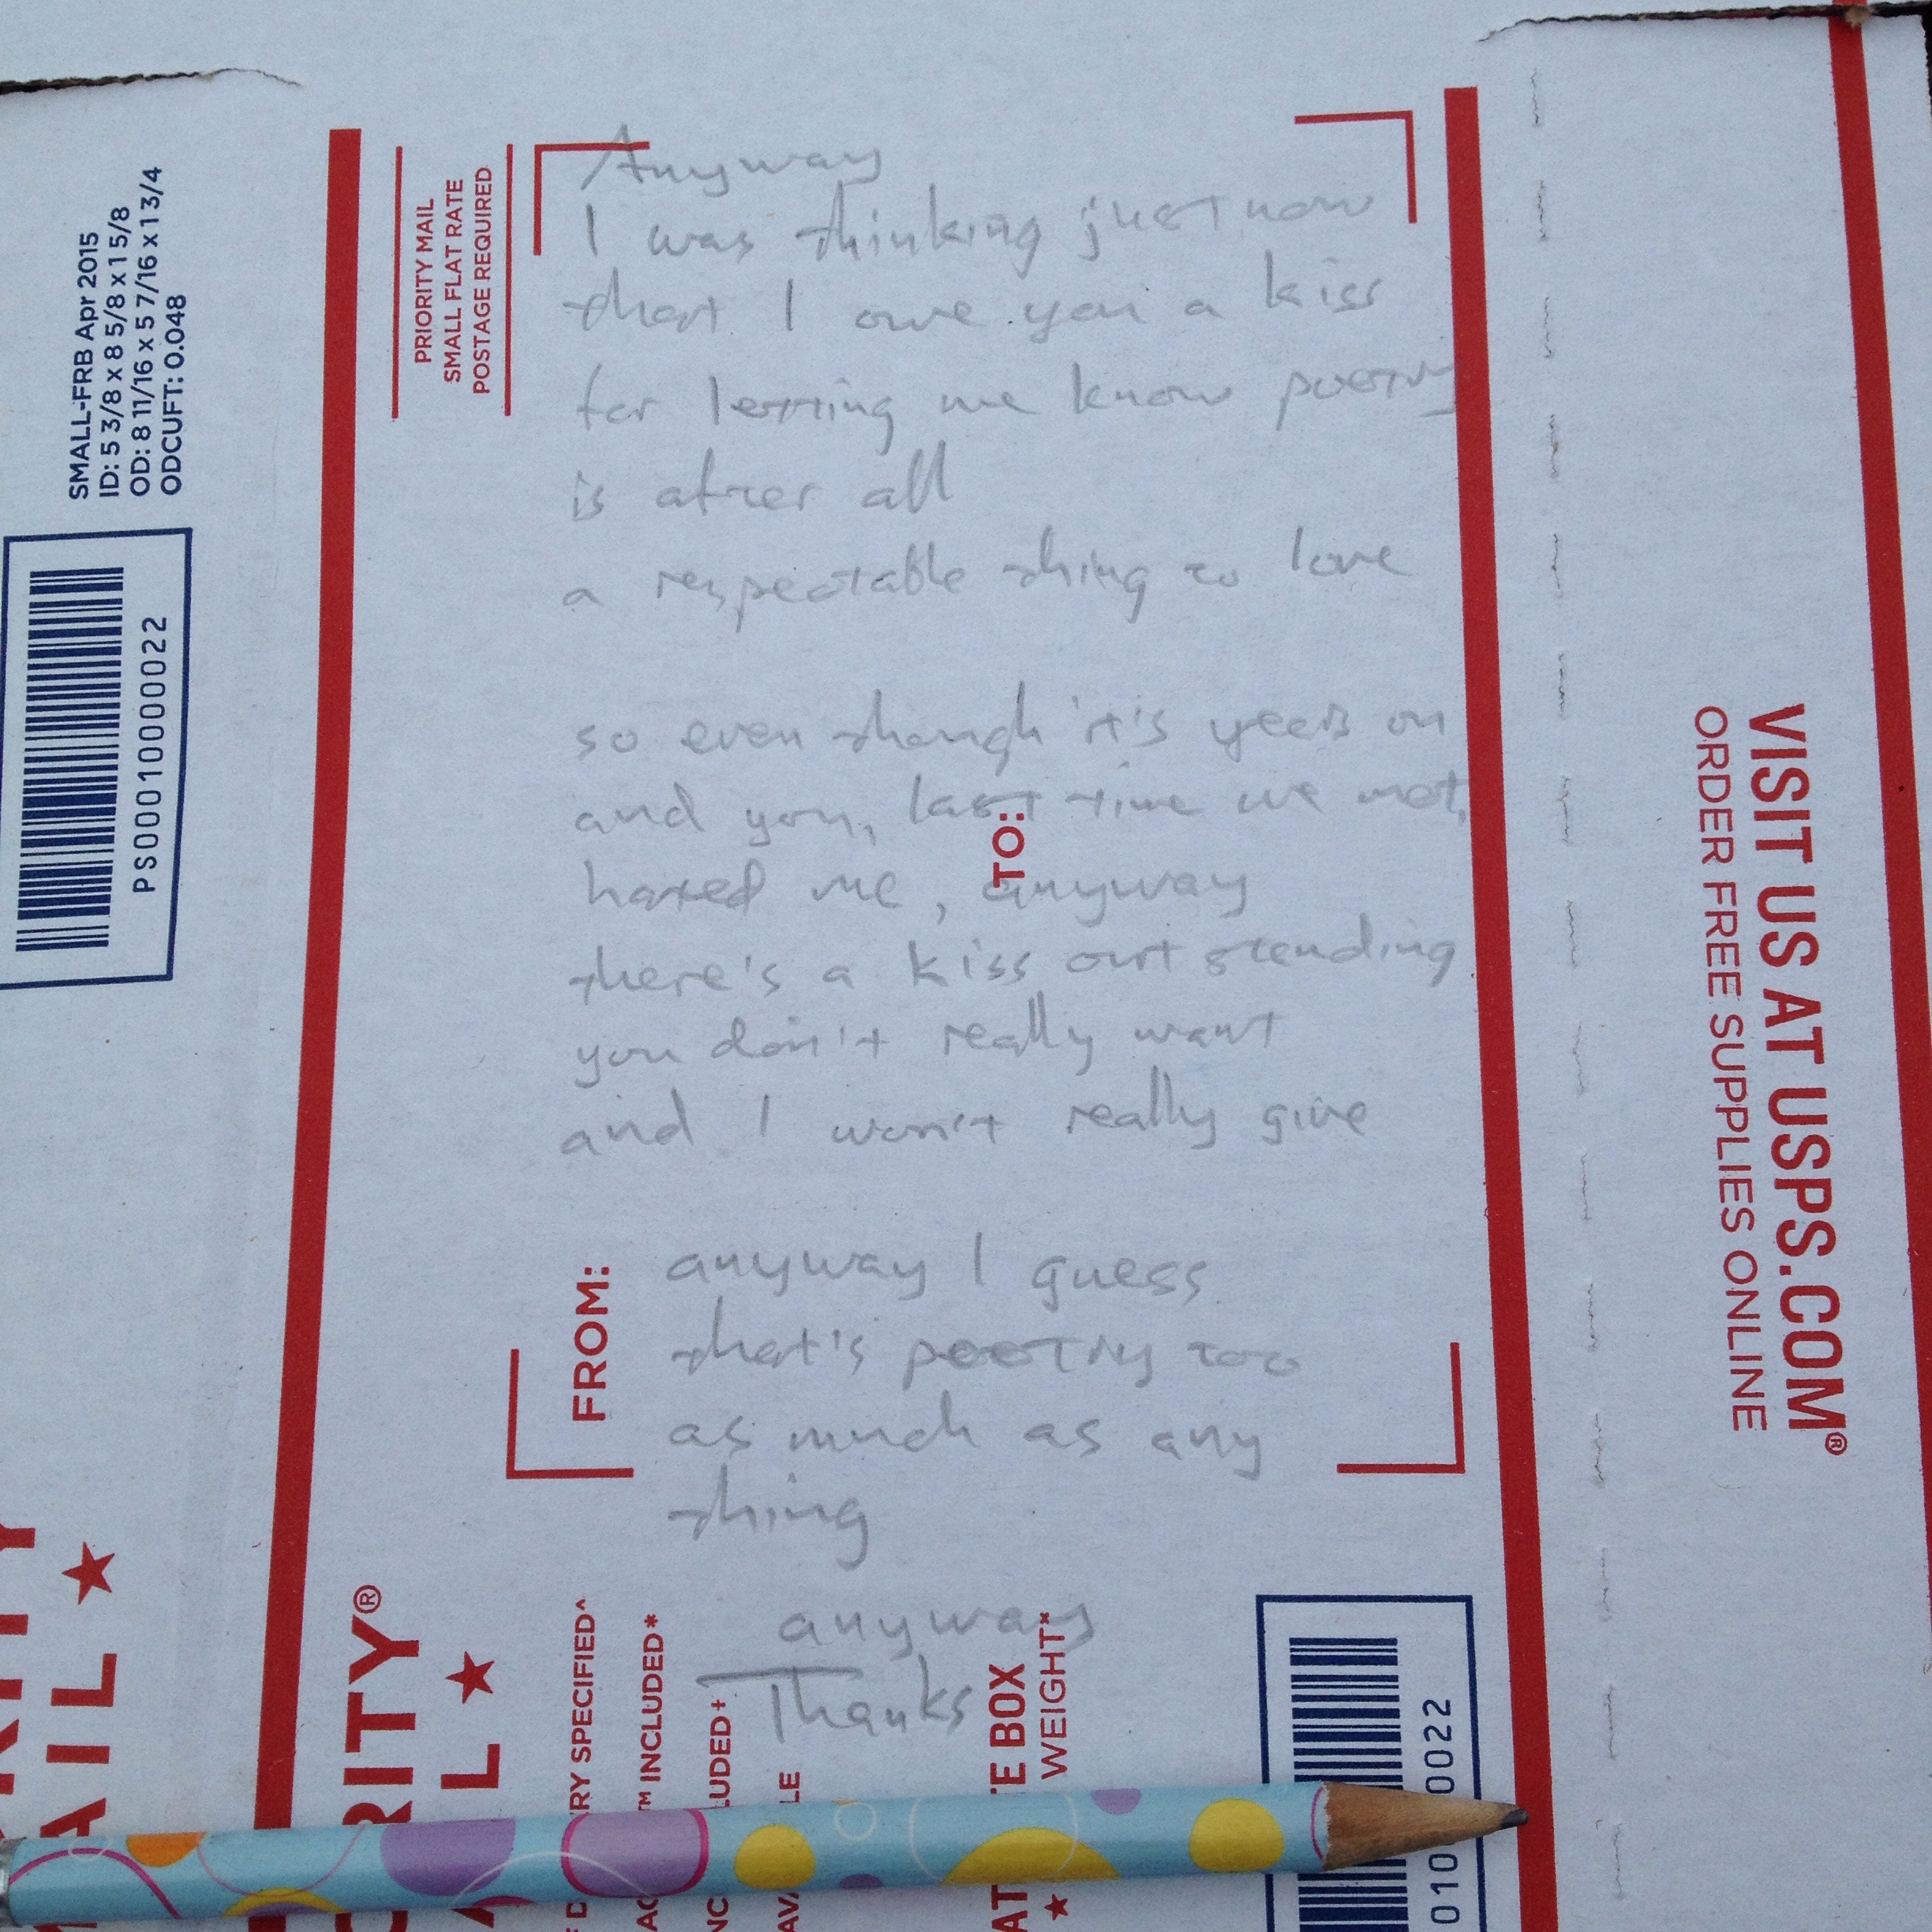 Anyway
I was thinking just now
that I owe you a kiss
for letting me know poetry
is after all
a respectable thing to love
so even though it's years on
and you, last time we met,
hated me, anyway
there's a kiss outstanding
you don't really want
and I won't really give
anyway I guess
that's poetry too
as much as any
thing
anyway
Thanks
SMALL-FRB Apr 2015
ID: 5 3/8 x 8 5/8 x 1 5/8
OD: 8 11/16 x 5 7/16 x 1 3/4
ODCUFT: 0.048
PS00010000022
PRIORITY MAIL
SMALL FLAT RATE
POSTAGE REQUIRED
TO:
FROM:
VISIT US AT USPS.COM®
ORDER FREE SUPPLIES ONLINE
AIL ★
RITY®
L ★
RY SPECIFIED^
™ INCLUDED*
LUDED†
LE
TE BOX
WEIGHT*
010
0022